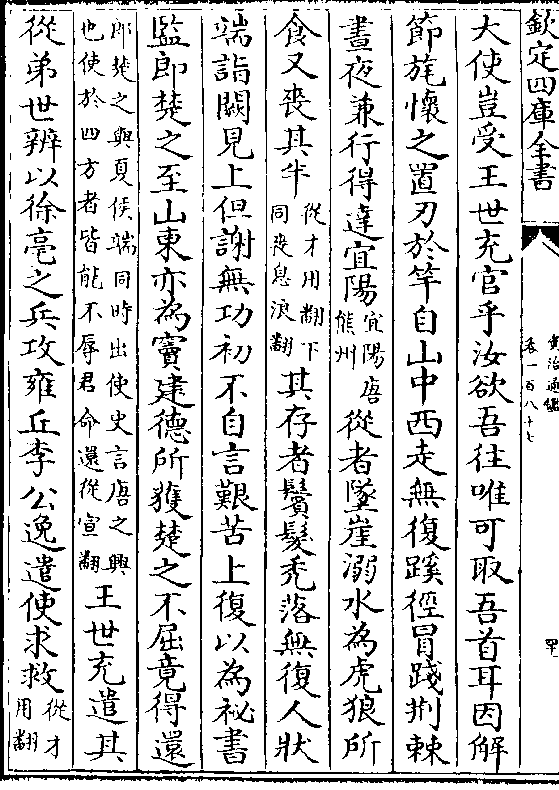 欽定四庫全書
資治通鑑
卷一百八十七
大使豈受王世充官乎汝欲吾往唯可取吾首耳因解
節旄懷之置刃於竿自山中西走無復蹊徑冒踐荆棘
晝夜兼行得達宜陽宜陽唐熊州從者墜崖溺水為虎狼所
食又喪其半從才用翻下同喪息浪翻其存者鬢髮秃落無復人狀
端詣闕見上但謝無功初不自言艱苦上復以為祕書
監郎楚之至山東亦為竇建德所獲楚之不屈竟得還
郎楚之與夏侯端同時出使史言唐之興也使於四方者皆能不辱君命還從宣翻王世充遣其
從弟世辨以徐亳之兵攻雍丘李公逸遣使求救從才用翻